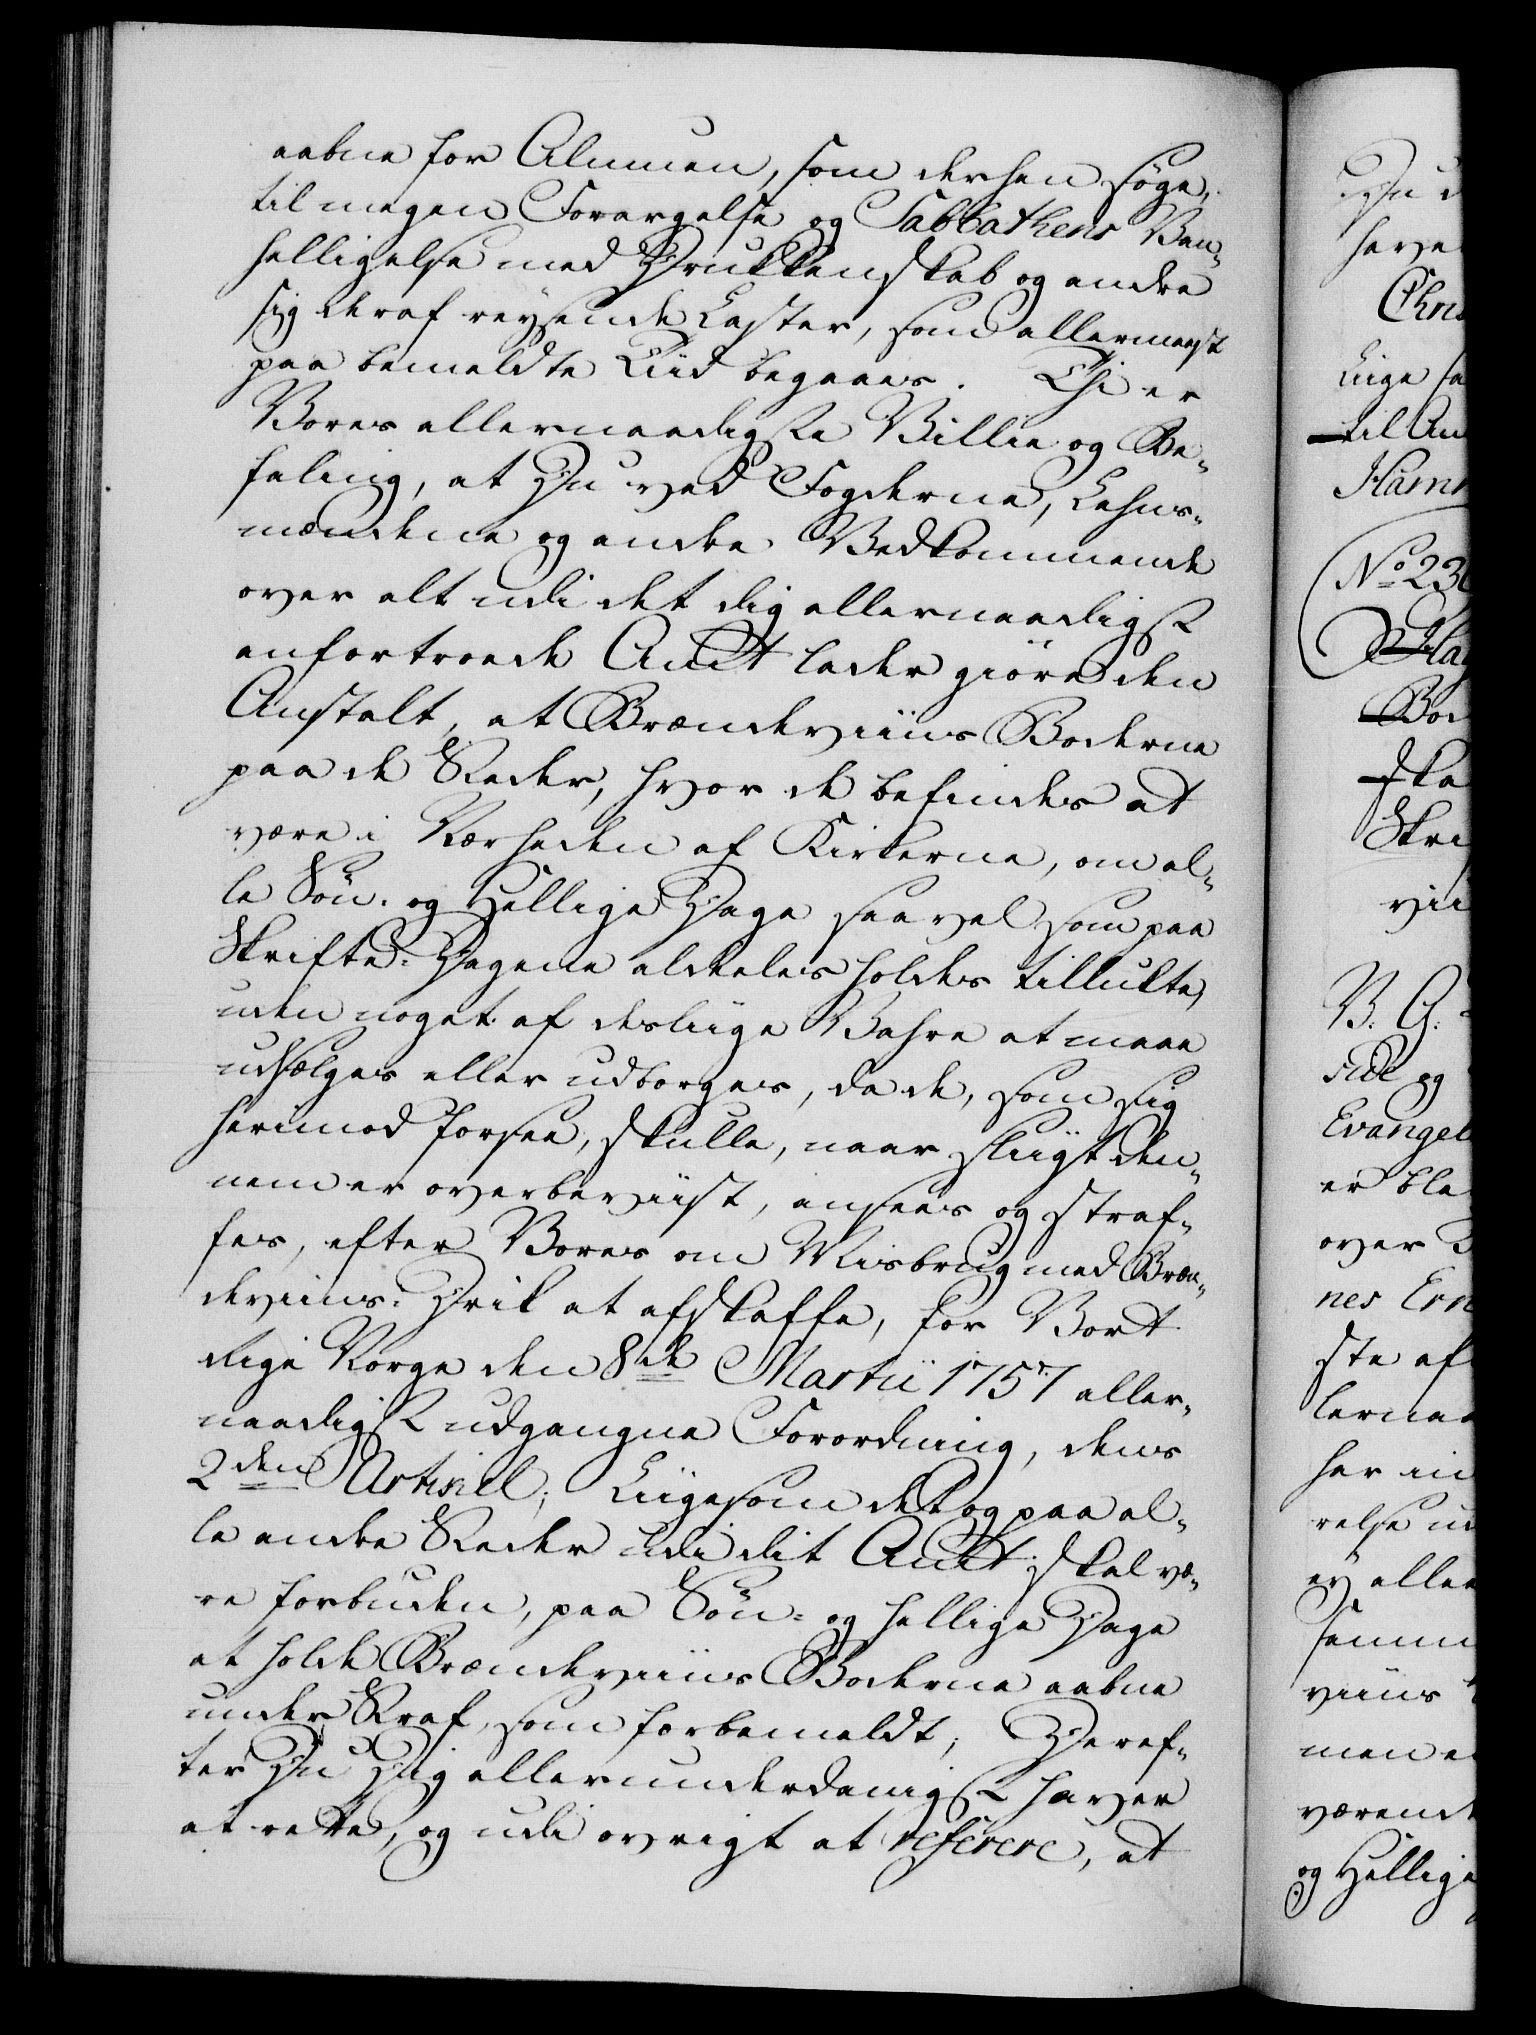 aabne for Almuen, som derhen søge,
til megen Forargelse og Sabbathens Van-
helligelse med Drukkenskab og andre
sig deraf reysende Laster, som allermeest
paa bemeldte Tiid begaaes. Thi er
Vores allernaadigste Villie og Be-
faling, at Du ved Fogderne, Lehns-
mændene og andre Vedkommende
over alt udi det dig allernaadigst
anfortroede Amt lader giøre den
Anstalt, at Brændeviins Boderne
paa de Steder, hvor de befindes at
være i Nærheden af Kirkerne, om al-
le Søn- og Hellige Dage saavel som paa
Skrifte-Dagene aldeeles holdes tillukte,
uden noget af desliige Vahre at maae
udsælges eller udborges, da de, som sig
herimod forsee, skulle, naar sliigt den-
nem er overbeviist, ansees og straf-
fes, efter Vores om Misbrug med Bræn-
deviins-Drik at afskaffe, for Vort
Rige Norge den 8de Martii 1757 aller-
naadigst udgangne Forordning, dens
2den Artikel; Liigesom det og paa al-
le andre Steder udi dit Amt skal væ-
re forbuden, paa Søn- og hellige Dage
at holde Brændeviins Boderne aabne
under Straf, som forbemeldt; Deref-
ter Du Dig allerunderdanigst haver
at rette, og udi øvrigt at referere, at

Du
have
Chri
Liige sa
til Am
Ham
No 23
Bod
ska
Skri
vii
V. G.
og
Evangel
er ble
over
nes Ern
ste af
lernaa
her in
relse ud
ey alle
samm
viins
men e
værend
og Hellige